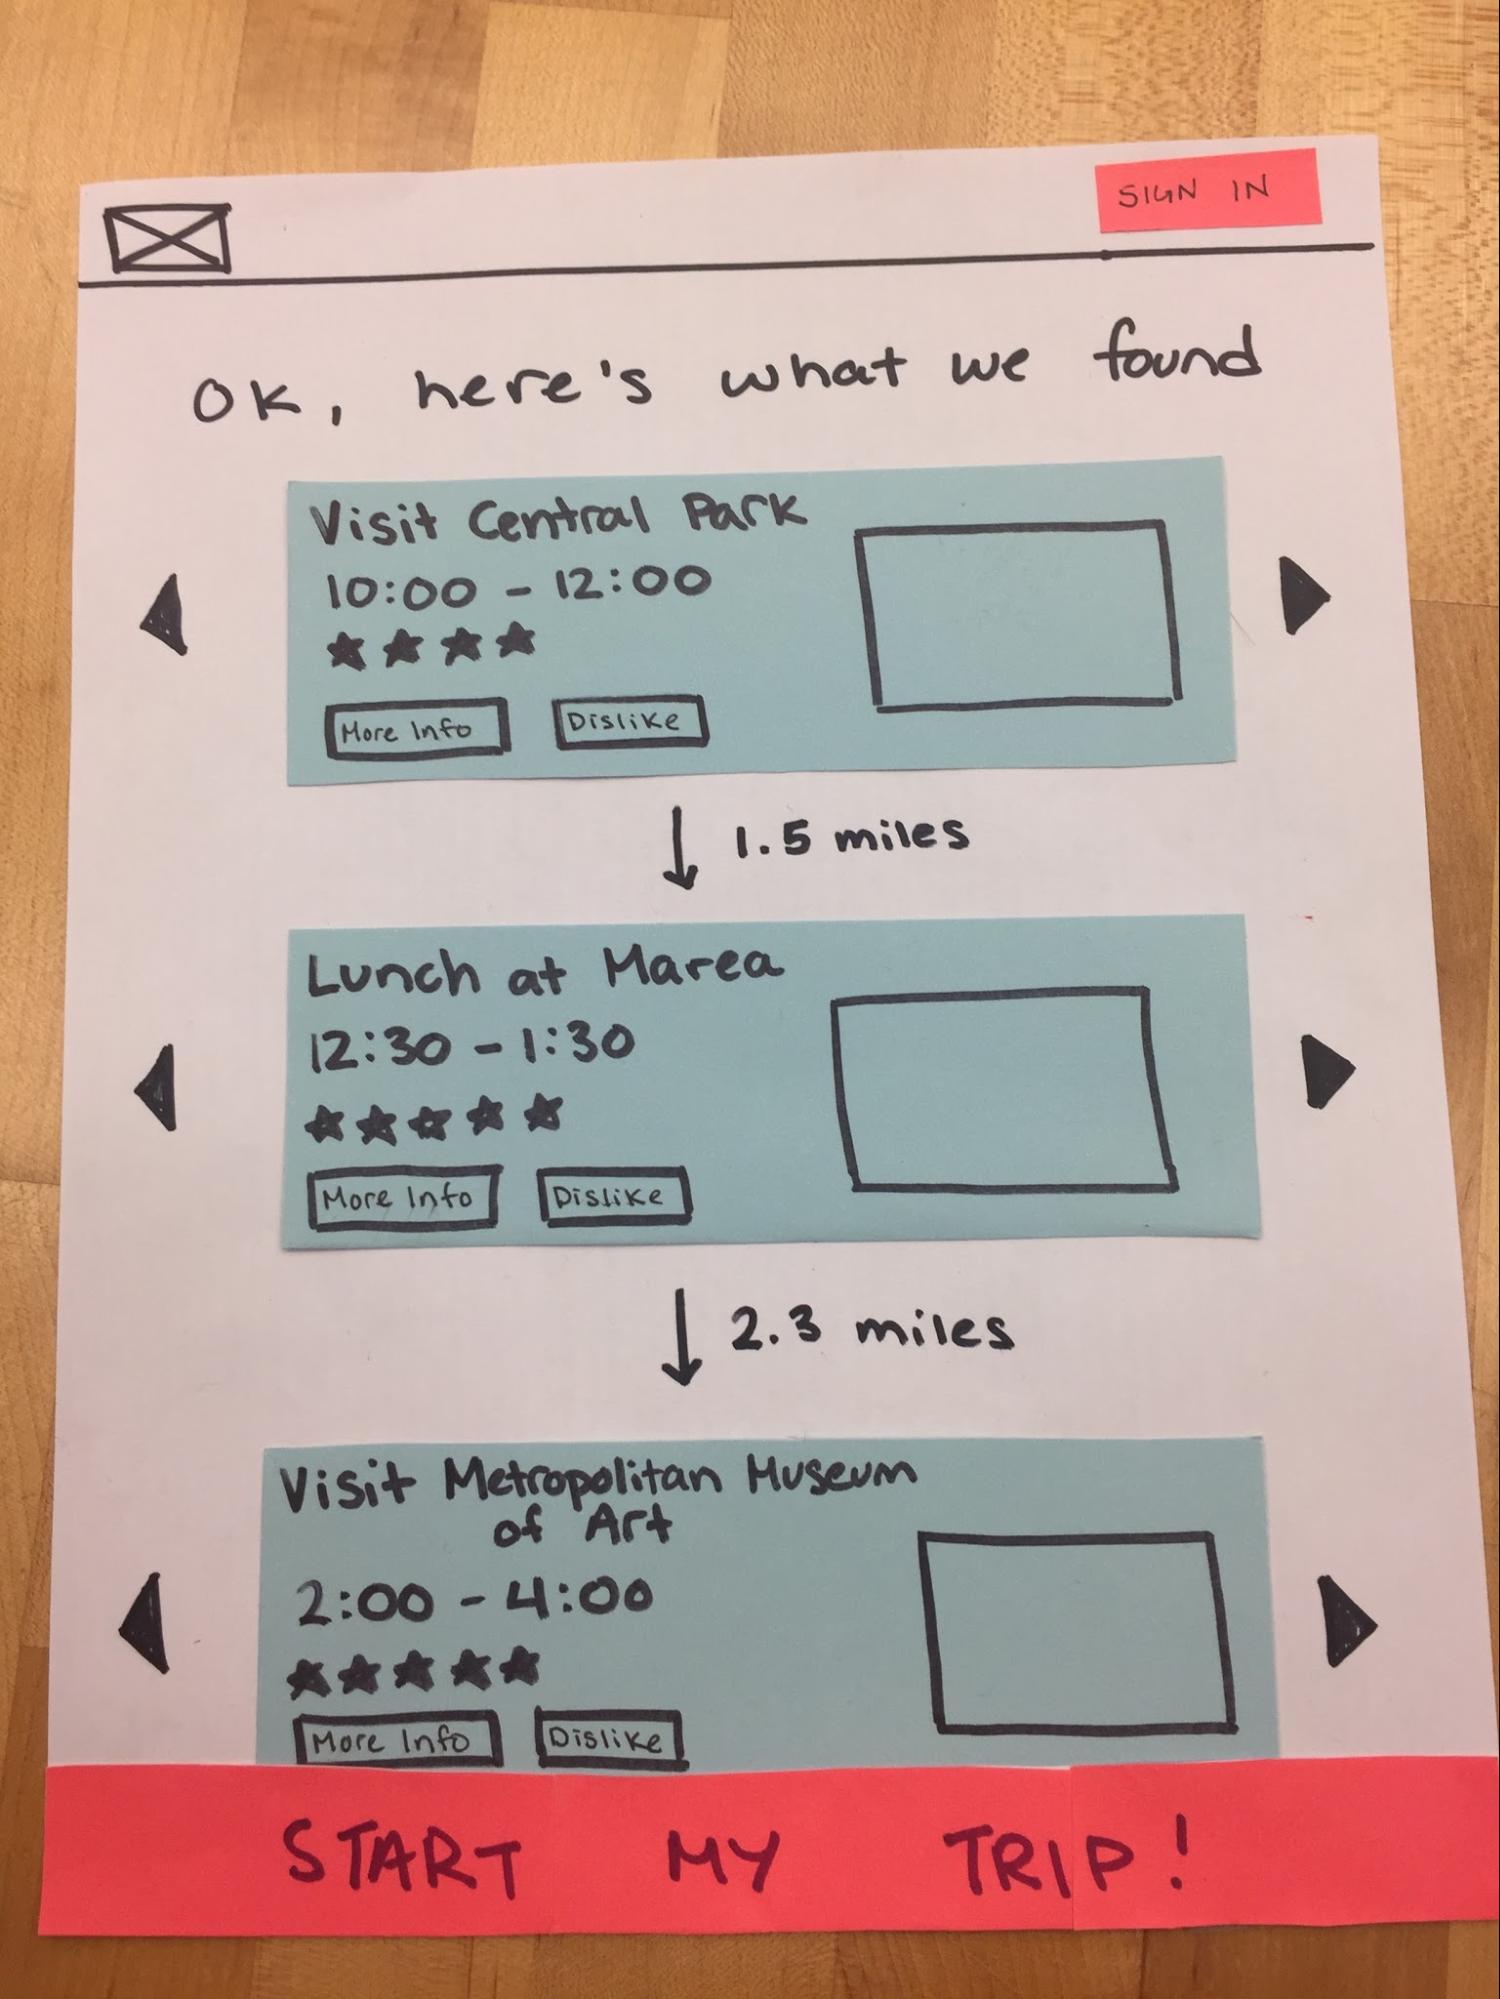 SIGN IN
OK, here's what we found
Visit Central Park
10:00 - 12:00
More Info
Dislike
1.5 miles
Lunch at Marea
12:30 - 1:30
More Info
Dislike
2.3 miles
Visit Metropolitan Museum
of Art
2:00 - 4:00
More Info
Dislike
START MY TRIP!